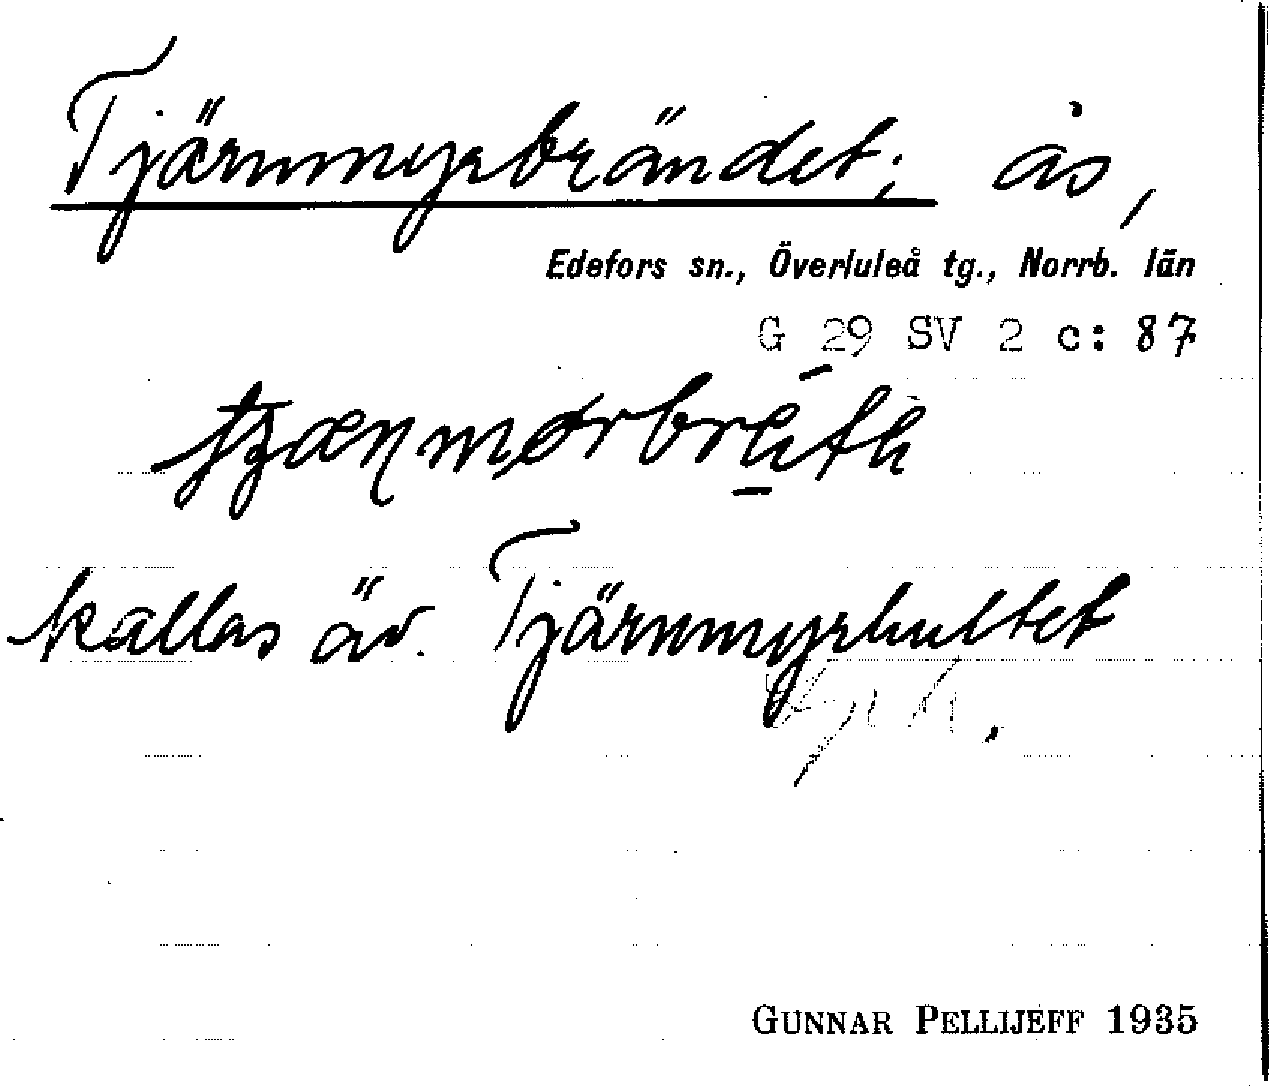 Tjärnmyrbrändet; ås,
Edefors sn., Överluleå tg., Norrb. län
G 29 SV 2 c: 87
kallas äv. Tjärnmyrhultet
GUNNAR PELLIJEFF 1935